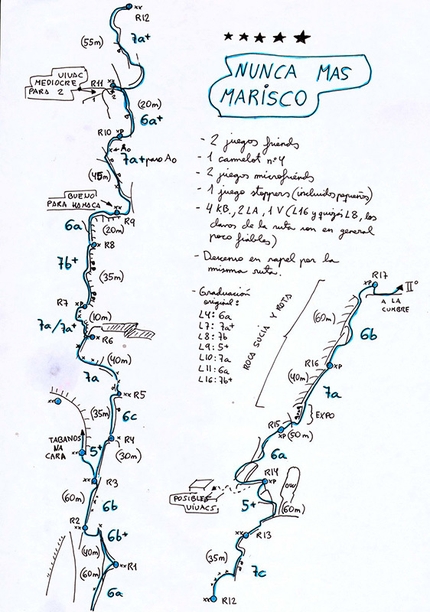 NUNCA MAS
MARISCO
- 2 juegos friends
- 1 camelot nº4
- 2 juegos microfriends
- 1 juego stoppers (incluidos pequeños)
- 4 K.B., 2 LA, 1 V (L16 y quizás L8, los
clavos de la ruta son en general
poco fiables)
- Descenso en rapel por la
misma ruta.
- Graduación
original:
L4: 6a
L7: 7a+
L8: 7b
L9: 5+
L10: 7a
L11: 6a
L16: 7b+
R12
7a+
(55m)
VIVAC
MEDIOCRE
PARA 2
R11
(20m)
6a+
R10
7a+ pero A0
A0
(45m)
BUENO
PARA HAMACA
R9
6a
(20m)
R8
7b+
(35m)
R7
(10m)
7a/7a+
R6
(40m)
7a
R5
(35m)
6c
R4
TABANOS
NA
CARA
5+
(30m)
R3
(60m)
6b
R2
6b+
(40m)
R1
(60m)
6a
R17
IIº
A LA
CUMBRE
(60m)
6b
ROCA SUCIA Y ROTA
R16
(40m)
7a
EXPO
R15
(50m)
6a
R14
POSIBLES
VIVACS
5+
(60m)
R13
(35m)
7c
R12